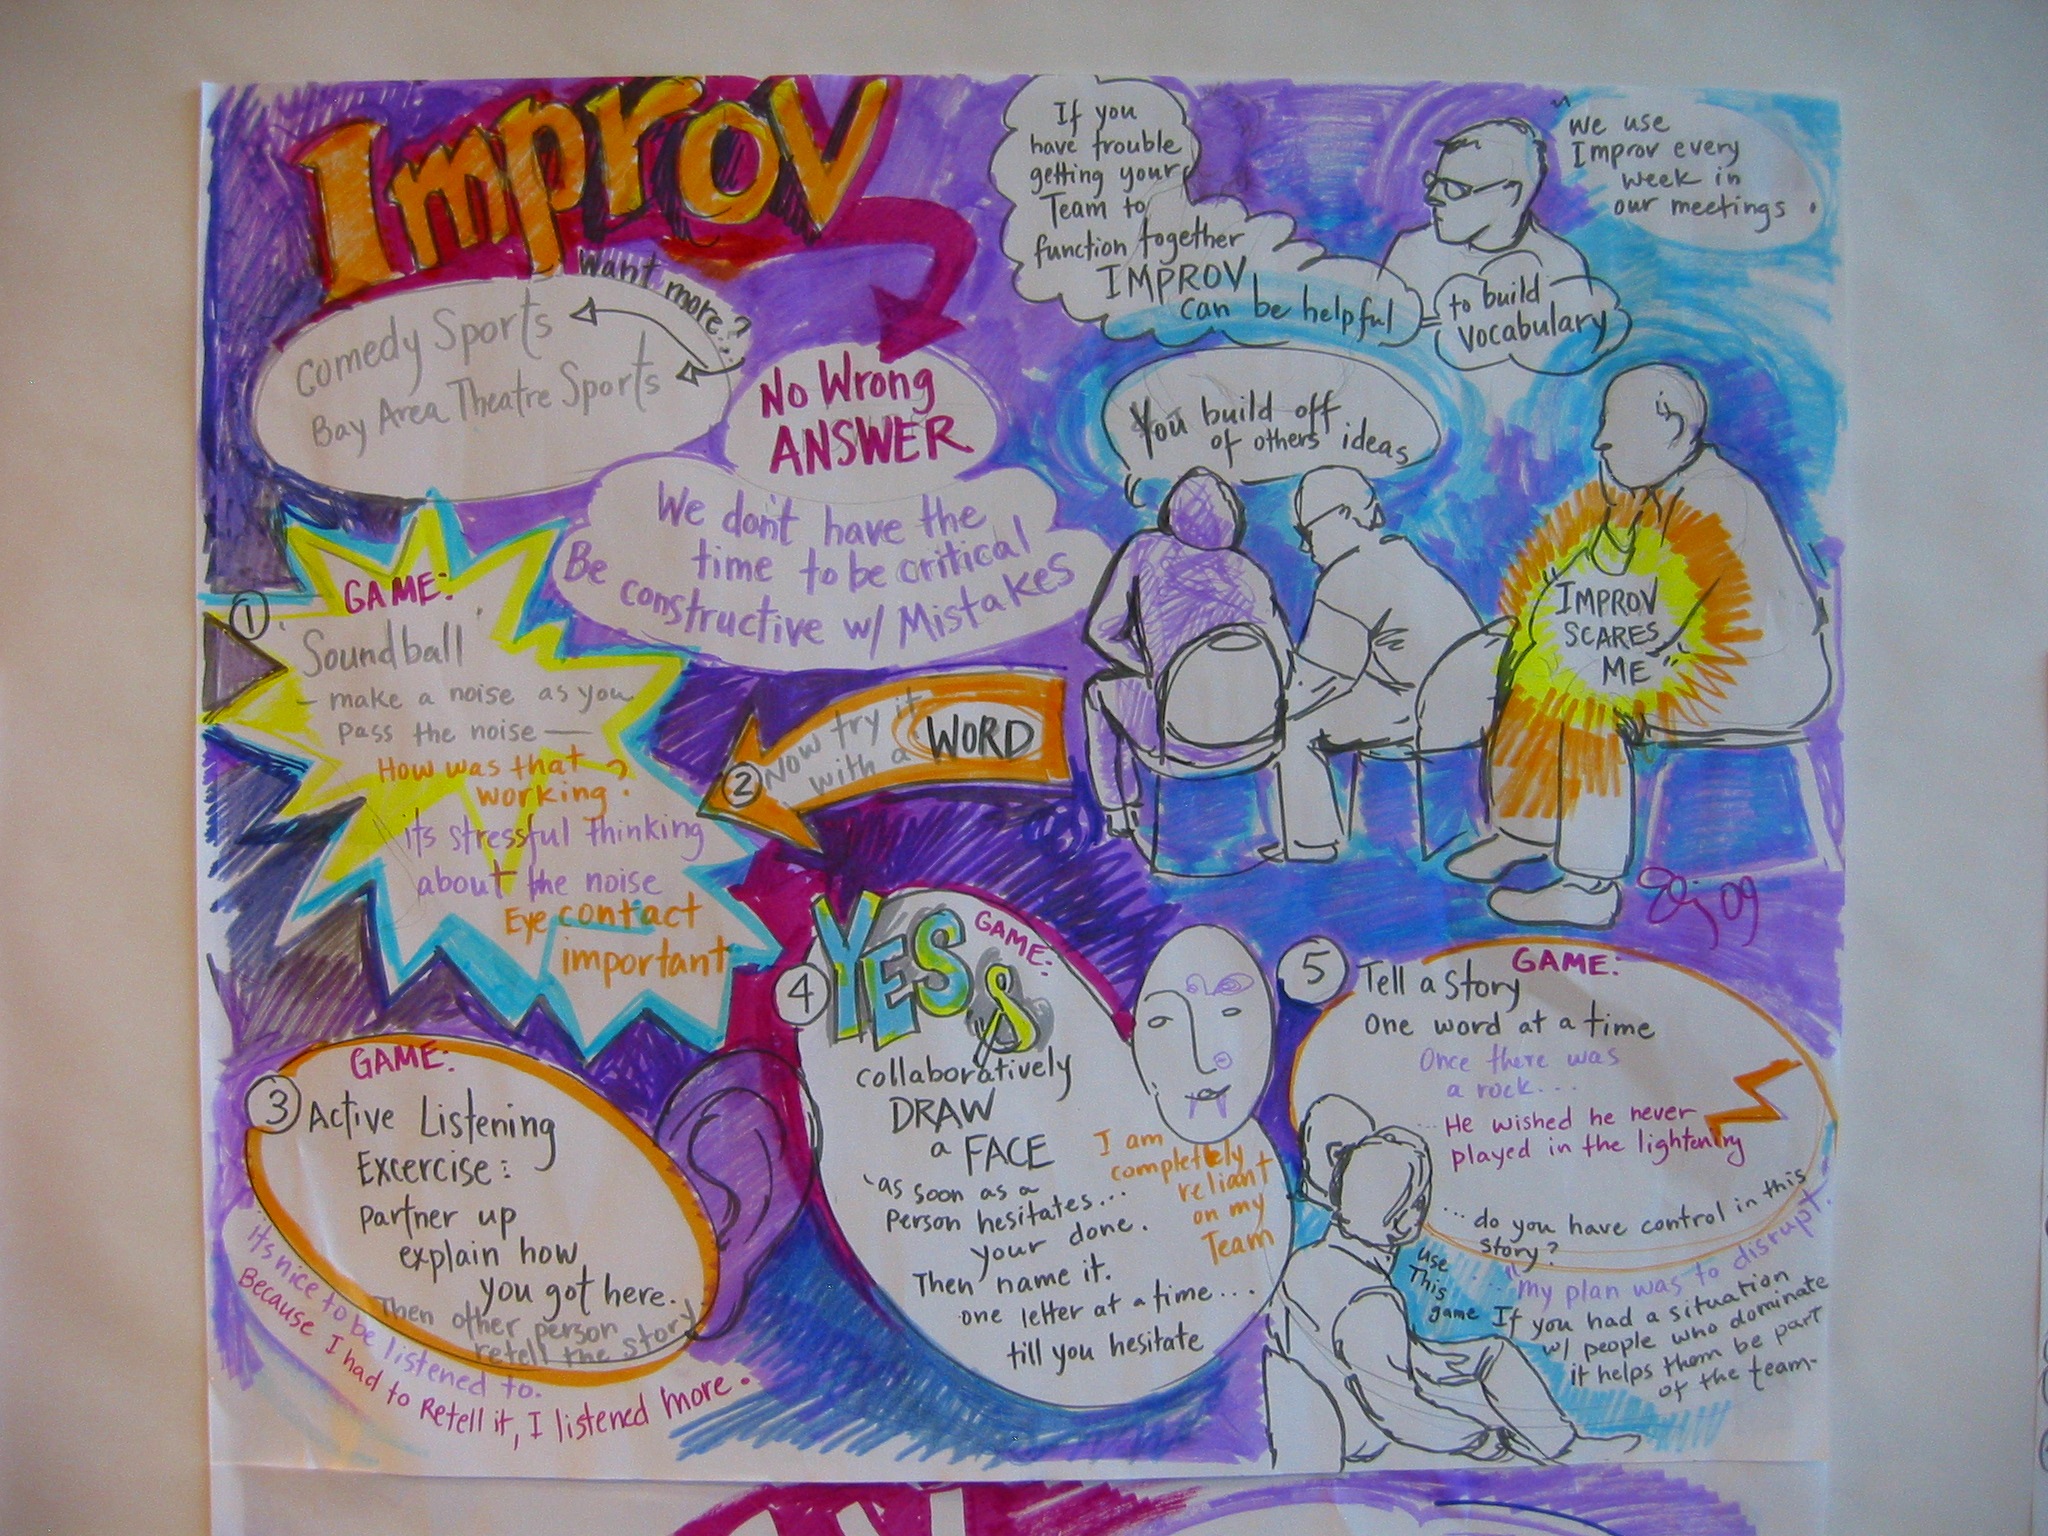 Improv
Want more?
Comedy Sports
Bay Area Theatre Sports
No Wrong
ANSWER
We don't have the
time to be critical
Be constructive w/ Mistakes
If you
have trouble
getting your
Team to
function together
IMPROV
can be helpful
= to build
vocabulary
"We use
Improv every
week in
our meetings.
You build off
of others' ideas
"IMPROV
SCARES
ME"
1
GAME:
'Soundball'
- make a noise as you
pass the noise —
How was that
working?
its stressful thinking
about the noise
Eye contact
important
2
Now try it
with a WORD
3
GAME:
Active Listening
Excercise:
partner up
explain how
you got here.
Then other person
retell the story
it's nice to be listened to.
Because I had to Retell it, I listened more.
4
YES &
GAME:
collaboratively
DRAW
a FACE
'as soon as a
person hesitates...
your done.
Then name it.
one letter at a time...
till you hesitate
I am
completely
reliant
on my
Team
5
GAME:
Tell a Story
One word at a time
Once there was
a rock...
... He wished he never
played in the lightening
... do you have control in this
story?
"My plan was to disrupt.
use
This
game
If you had a situation
w/ people who dominate
it helps them be part
of the team-
09